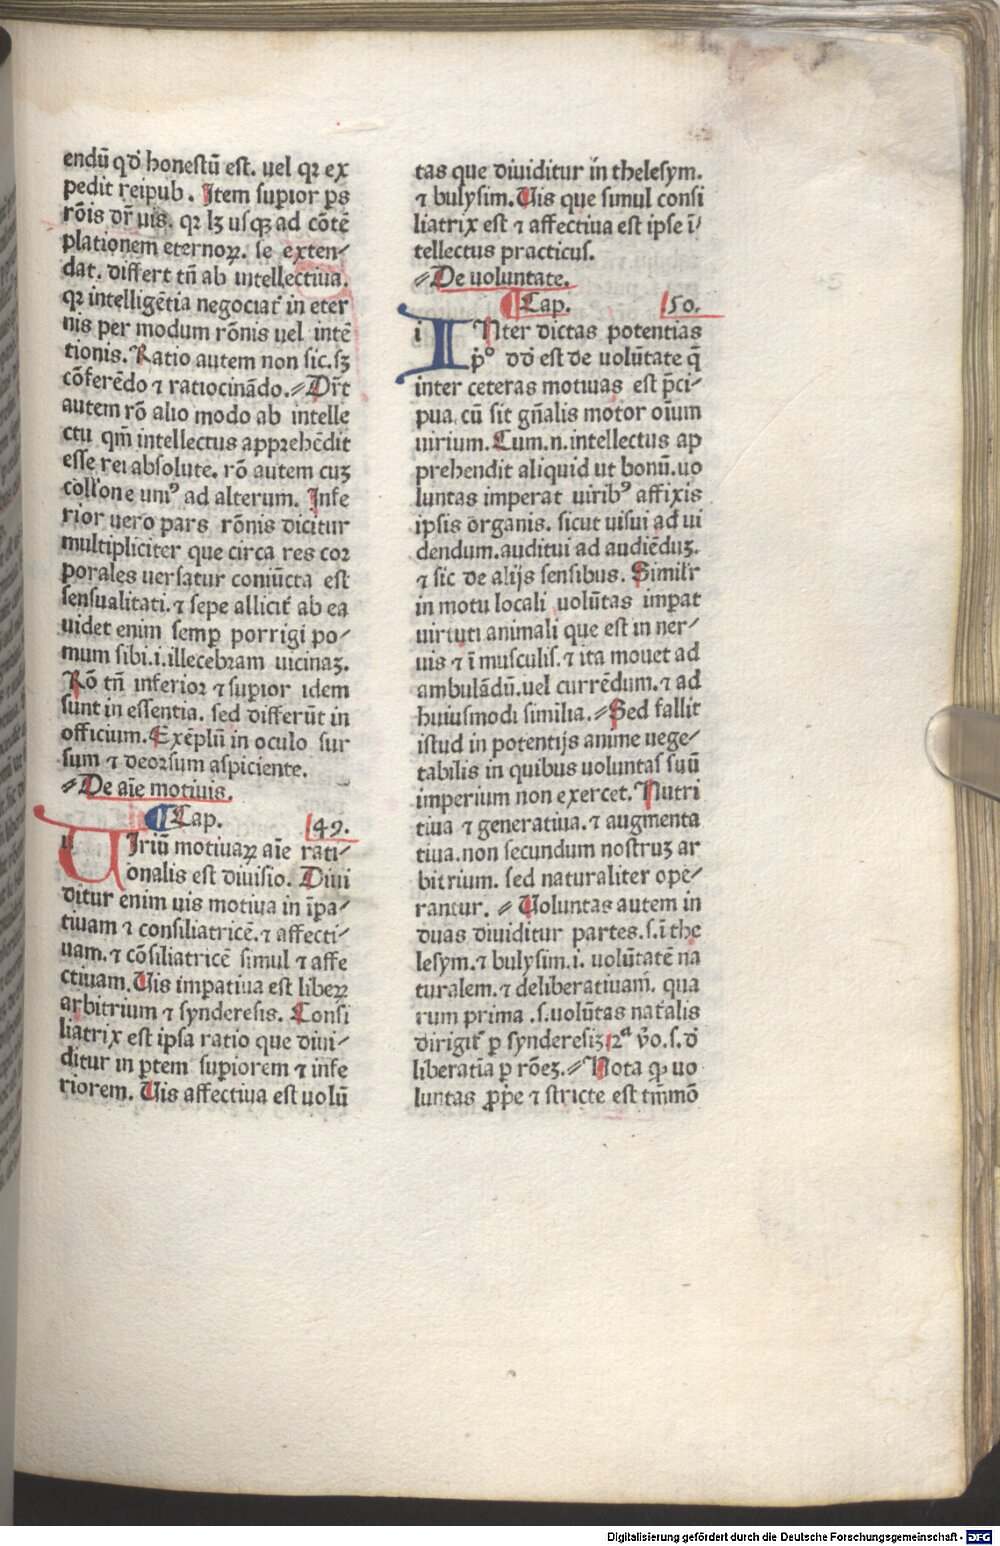 endū qd̓ honestū est. uel qꝛ ex
pedit reipub. Item supior ps
rōis dr̄ uis. qꝛ lꝫ usqꝫ ad cōtē
plationem eternoꝝ. se exten⸗
dat. differt tn̄ ab intellectiua.
qꝛ intelligētia negociat̄ in eter
nis per modum rōnis uel intē
tionis. Ratio autem non sic. sꝫ
cōferēdo ⁊ ratiocinādo. ⸗ Dr̄t
autem rō alio modo ab intelle
ctu qm̄ intellectus apprehēdit
esse rei absolute. rō autem cuꝫ
coll̓one uniꝰ ad alterum. Infe
rior uero pars rōnis dicitur
multipliciter que circa res coꝛ
porales uersatur coniūcta est
sensualitati. ⁊ sepe allicit̄ ab ea
uidet enim semꝑ porrigi po⸗
mum sibi .i. illecebram uicinaꝫ.
Rō tn̄ inferioꝛ ⁊ supior idem
sunt in essentia. sed differūt in
officium. Exēplū in oculo sur
sum ⁊ deoꝛsum aspiciente.
⸗ De aīe motiuis.
¶ Cap. 49.
u
UIriū motiuaꝝ aīe rati⸗
onalis est diuisio. Diui
ditur enim uis motiua in īpa⸗
tiuam ⁊ consiliatricē. ⁊ affecti⸗
uam. ⁊ cōsiliatricē simul ⁊ affe
ctiuam. Uis impatiua est libeꝝ
arbitrium ⁊ synderesis. Consi
liatrix est ipsa ratio que diui⸗
ditur in ꝑtem supiorem ⁊ infe
riorem. Uis affectiua est uolū
tas que diuiditur in thelesym.
⁊ bulysim. Uis que simul consi
liatrix est ⁊ affectiua est ipse ī⸗
tellectus practicus.
⸗ De uoluntate.
¶ Cap. 50.
i
INter dictas potentias
p̓º dd̓ est de volūtate q̄
inter ceteras motiuas est p̄ci⸗
pua. cū sit gn̄alis motor oīum
uirium. Cum .n. intellectus ap
prehendit aliquid ut bonū. uo
luntas imperat uiribꝰ affixis
ipsis organis. sicut uisui ad ui
dendum. auditui ad audiēduꝫ.
⁊ sic de alijs sensibus. Simil̓r
in motu locali uolūtas impat
uirtuti animali que est in ner⸗
uis ⁊ ī musculis. ⁊ ita mouet ad
ambulādū. uel currēdum. ⁊ ad
huiusmodi simīlia. ⸗ Sed fallit
istud in potentijs anime uege⸗
tabilis in quibus uoluntas suū
imperium non exercet. Nutri
tiua ⁊ generatiua. ⁊ augmenta
tiua. non secundum nostruꝫ ar
bitrium. sed naturaliter ope⸗
rantur. ⸗ Uoluntas autem in
duas diuiditur partes .s. ī the
lesym. ⁊ bulysim .i. uolūtatē na
turalem. ⁊ deliberatiuam̄. qua
rum prima .s. uolūtas nat̄alis
dirigit̄ ꝑ synderesiꝫ 2ª v̄o .s. d̓
liberatīa ꝑ rōeꝫ. ⸗ Nota ꝙ uo
luntas ꝓpe ⁊ stricte est tm̄mō
Digitalisierung gefördert durch die Deutsche Forschungsgemeinschaft - DFG